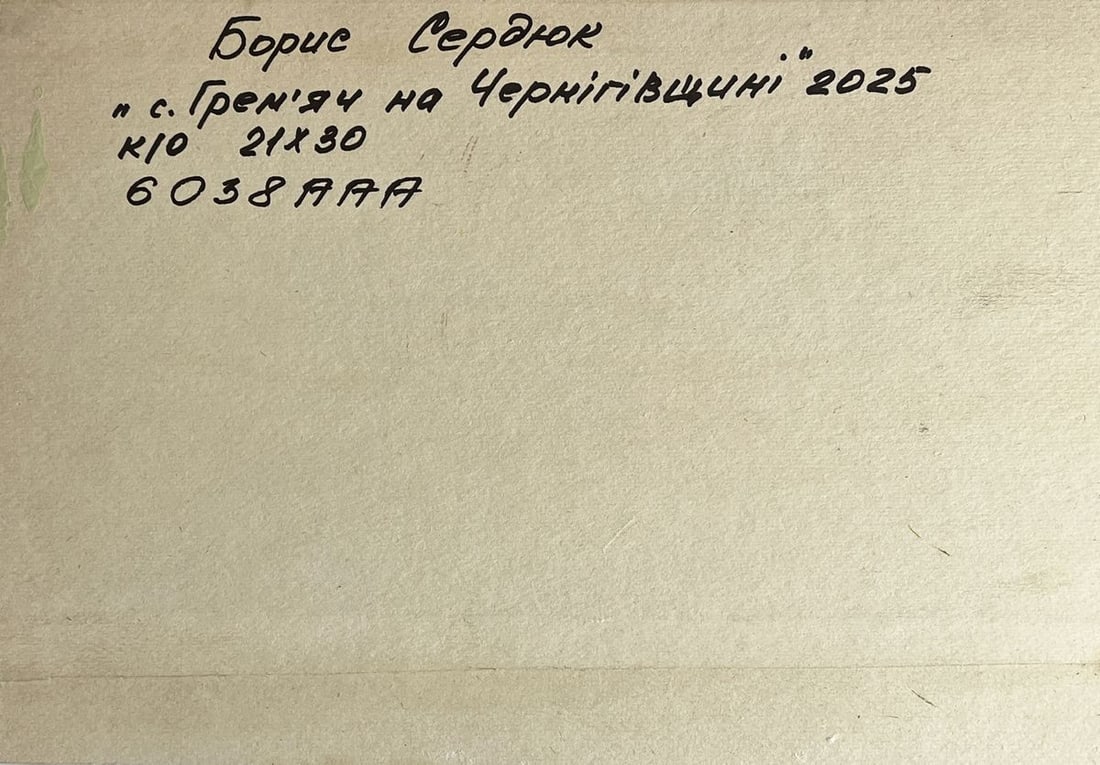 Борис Сердюк
„с. Грем'яч на Чернігівщині" 2025
к/о 21х30
6038ААА